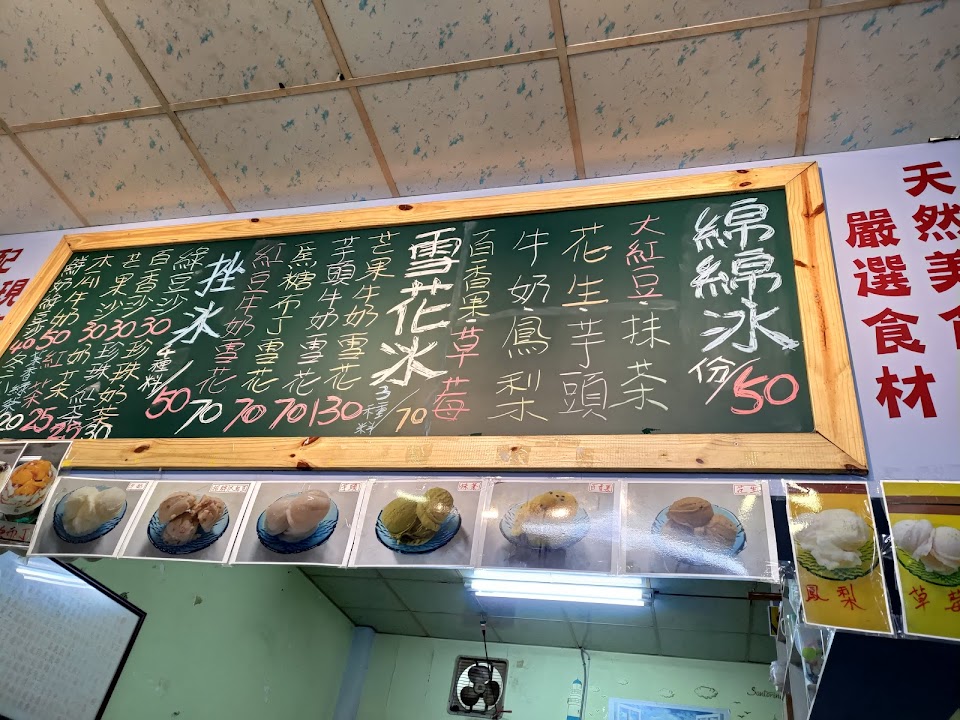 天然美
嚴選食材
綿綿冰 份/50
大紅豆·抹茶
花生·芋頭
牛奶·鳳梨
百香果草莓
雪花冰 3種料/70
芒果牛奶雪花 130
芋頭牛奶雪花 70
焦糖布丁雪花 70
紅豆牛奶雪花 70
挫冰 4種料/50
綠豆沙 30
百香沙 30
芒果沙 30
木瓜牛奶 50
40
珍珠奶茶 30
25
紅茶 25
20
鳳梨
草莓